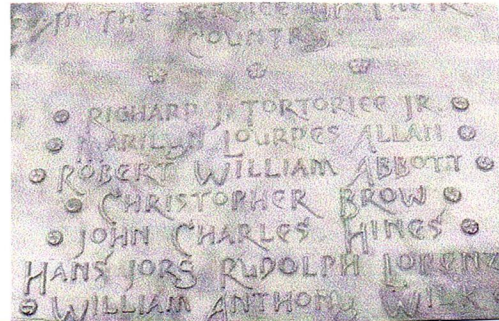 IN THE SERVICE OF THEIR
COUNTRY
RICHARD J TORTORICE JR.
MARILYN LOURDES ALLAN
ROBERT WILLIAM ABBOTT
CHRISTOPHER BROW
JOHN CHARLES HINES
HANS JORG RUDOLPH LORENZ
WILLIAM ANTHONY WILK